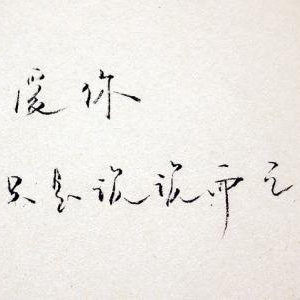 爱你
只是说说而已